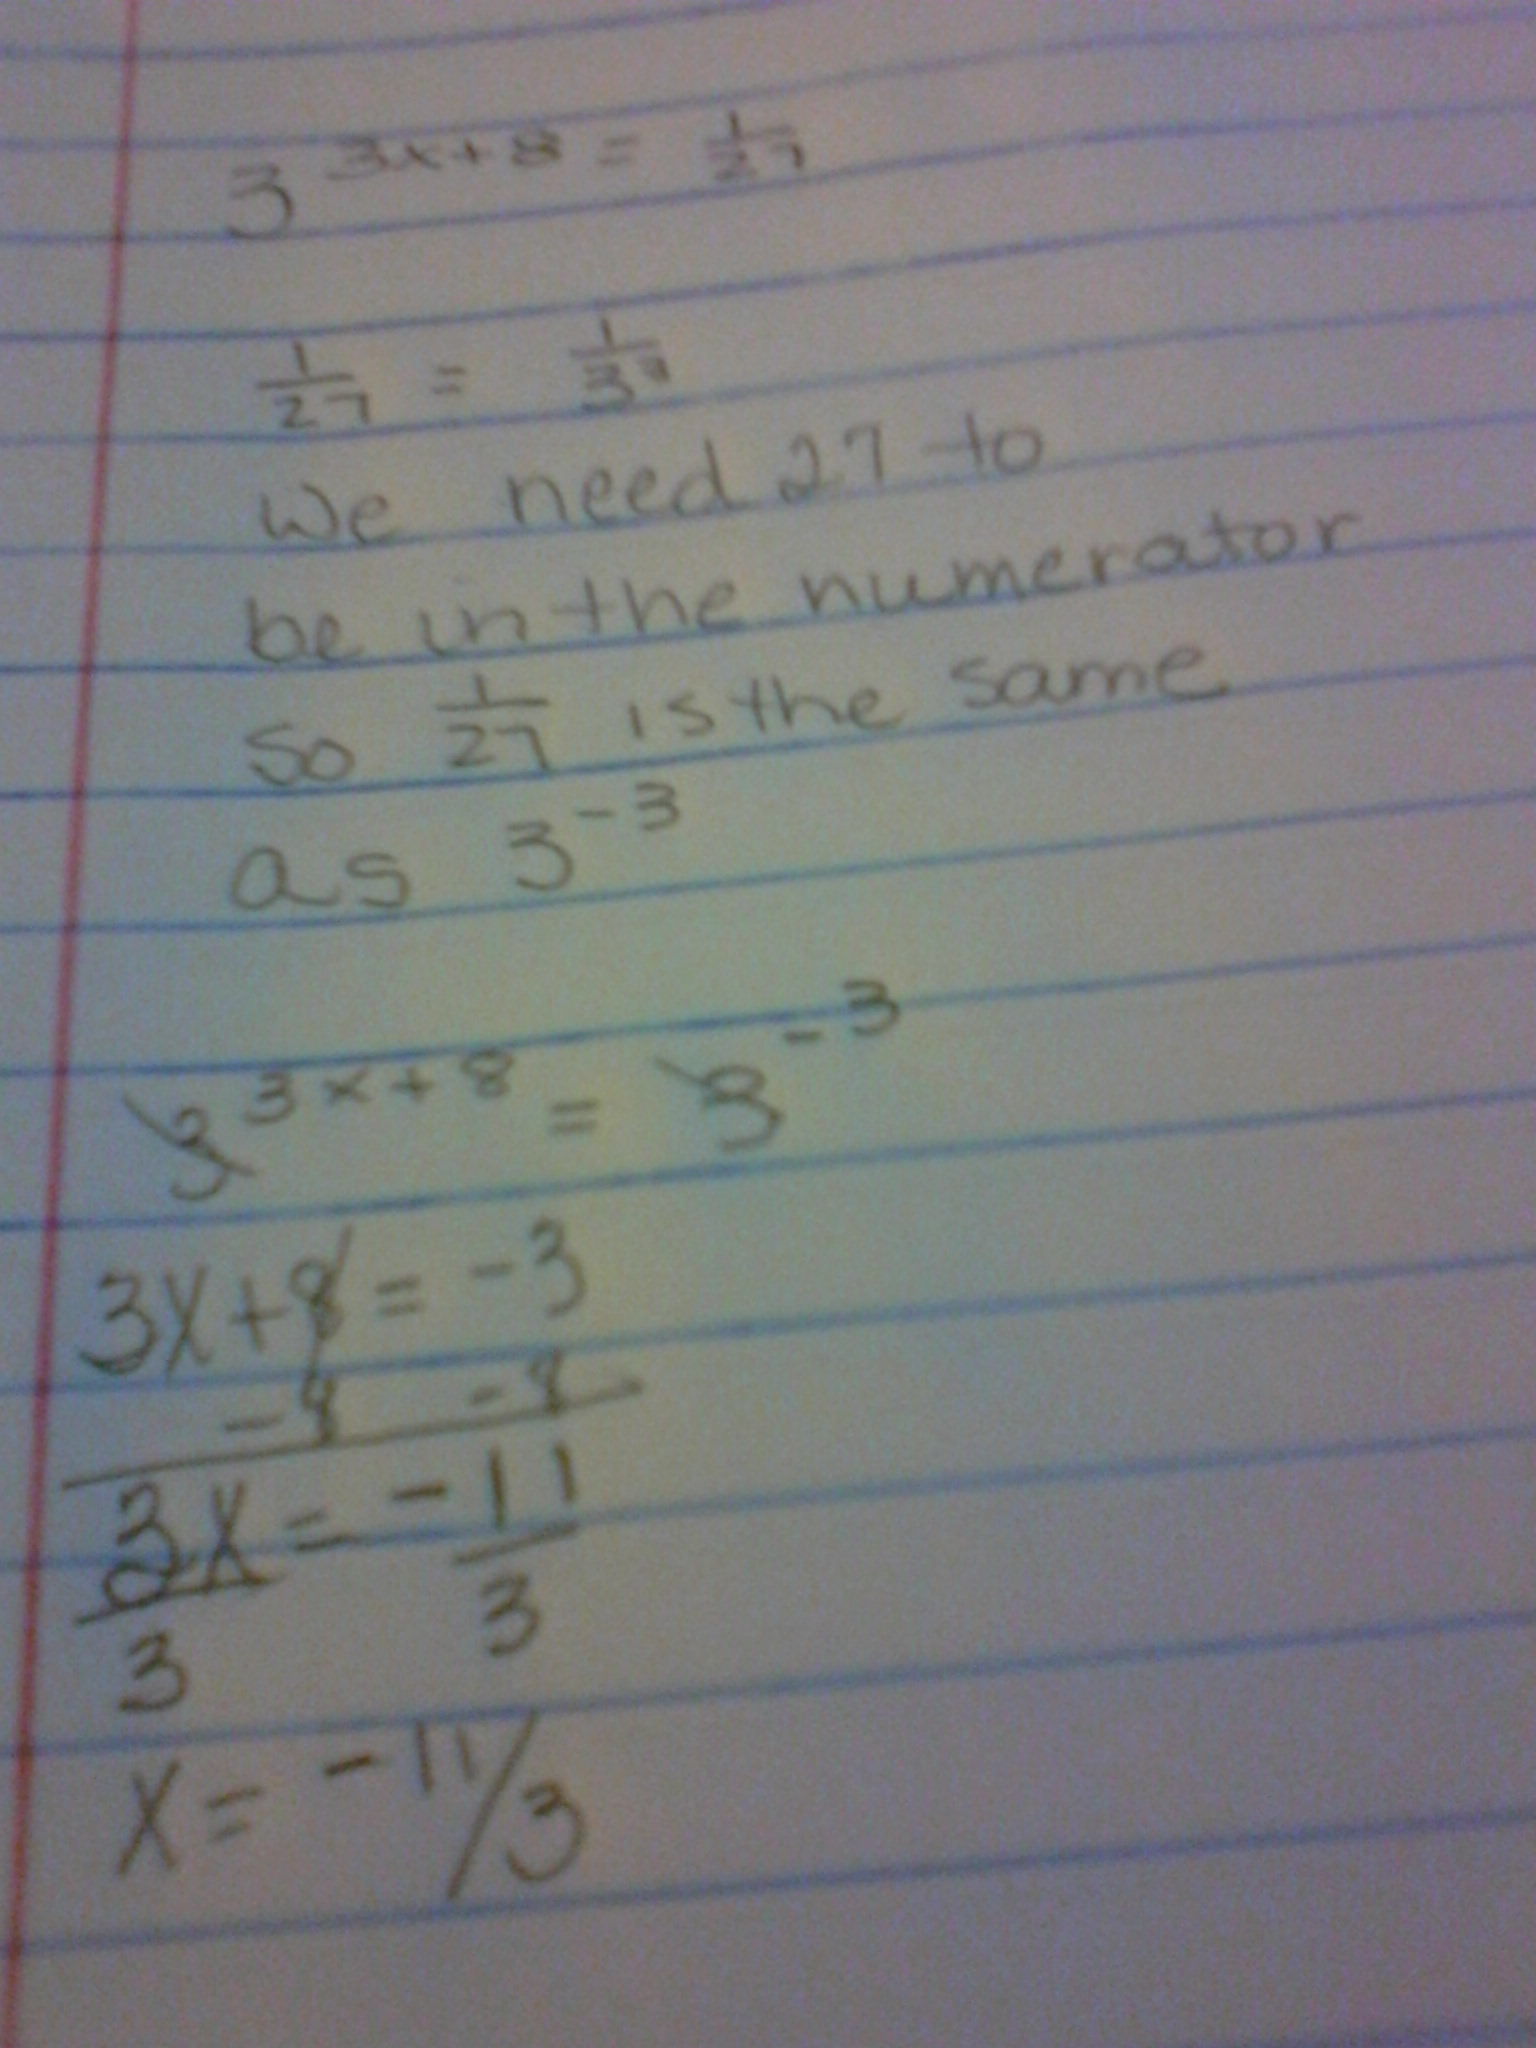 3^(3x+8) = 1/27
1/27 = 1/3³
We need 27 to
be in the numerator
So 1/27 is the same
as 3^-3
3^(3x+8) = 3^-3
3x+8 = -3
-8 -8
3x = -11
3 3
x = -11/3